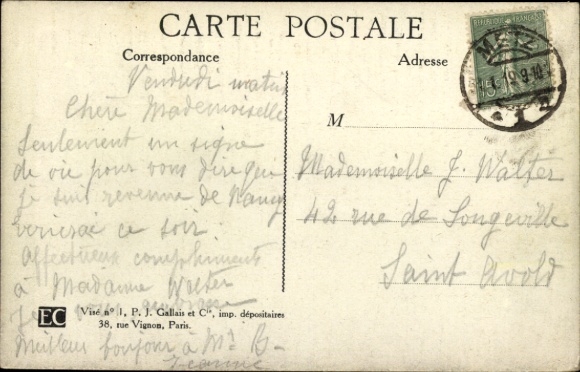 CARTE POSTALE
Correspondance
Adresse
RÉPUBLIQUE FRANÇAISE
METZ
Vendredi matin
Chère Mademoiselle
Seulement un signe
de vie pour vous dire que
je suis revenue de Nancy
ce soir.
Affectueux compliments
à Madame Walter
Je vous embrasse
Meilleur bonjour à Mr B-
Jeanne
M
Mademoiselle J. Walter
42 rue de Longeville
Saint Avold
EC
Visé nº 1, P. J. Gallais et Cie, imp. dépositaires
38, rue Vignon, Paris.